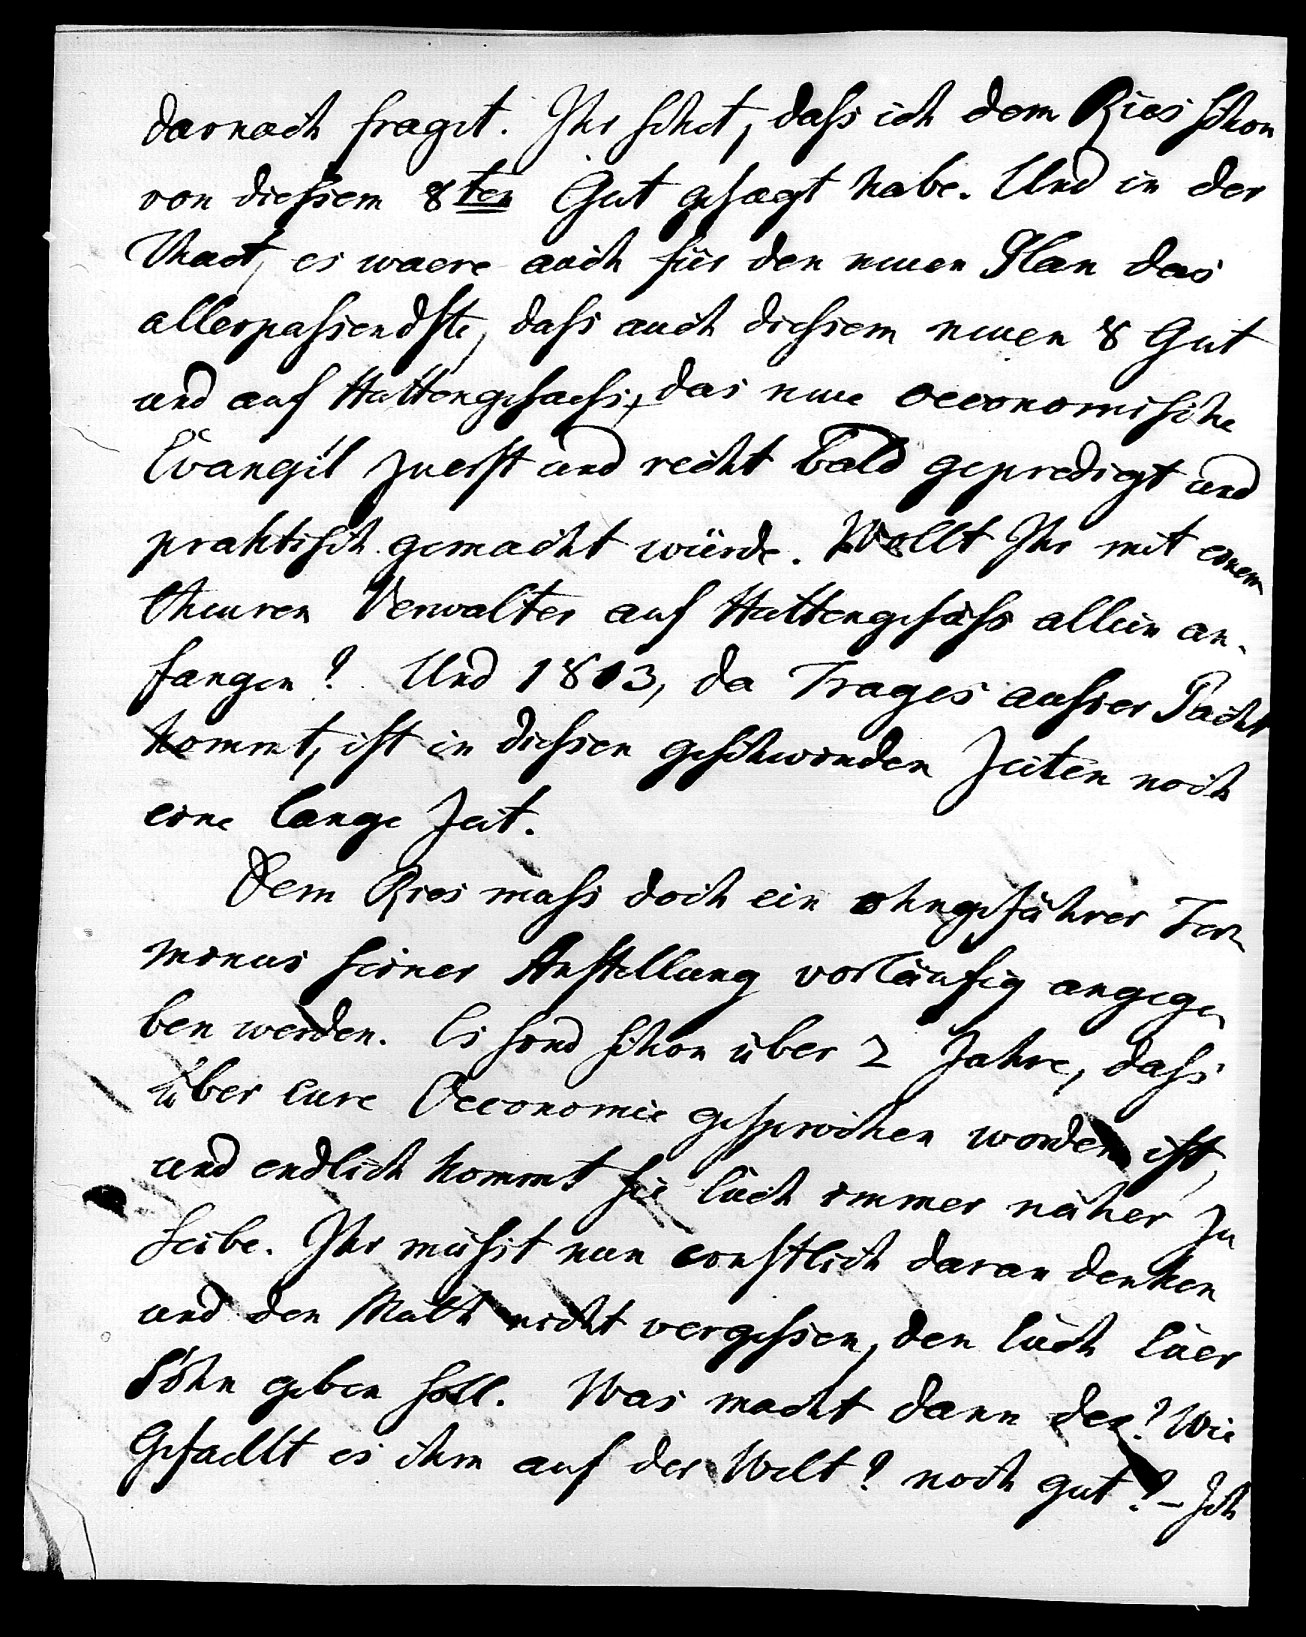 darnach fraget. Ihr sehet, dass ich dem Ries schon
von diessem 8ten Gut gesagt habe. Und in der
That, es waere auch für den neuen Plan das
allerpassendste, dass auch diessem neuen 8 Gut
und auf Hüttengesaess, das neue oeconomische
Evangel zuerst und recht bald gepredigt und
praktisch gemacht würde. Wollt Ihr mit einem
theuren Verwalter auf Hüttengesäss allein an-
fangen? Und 1813, da Trages ausser Pacht
kommt, ist in diessen geschwinden Zeiten noch
eine lange Zeit.
Dem Ries muss doch ein ohngefährer Ter
minus seiner Anstellung vorläufig angege
ben werden. Es sind schon über 2 Jahre, dass
über eure Oeconomie gesprochen worden ist,
und endlich kommt sie Euch immer näher zu
Leibe. Ihr müsst nun ernstlich daran denken
und den Muth nicht vergessen, den Euch Euer
Sohn geben soll. Was macht dann der? Wie
Gefaellt es ihm auf der Welt? noch gut? – Ich